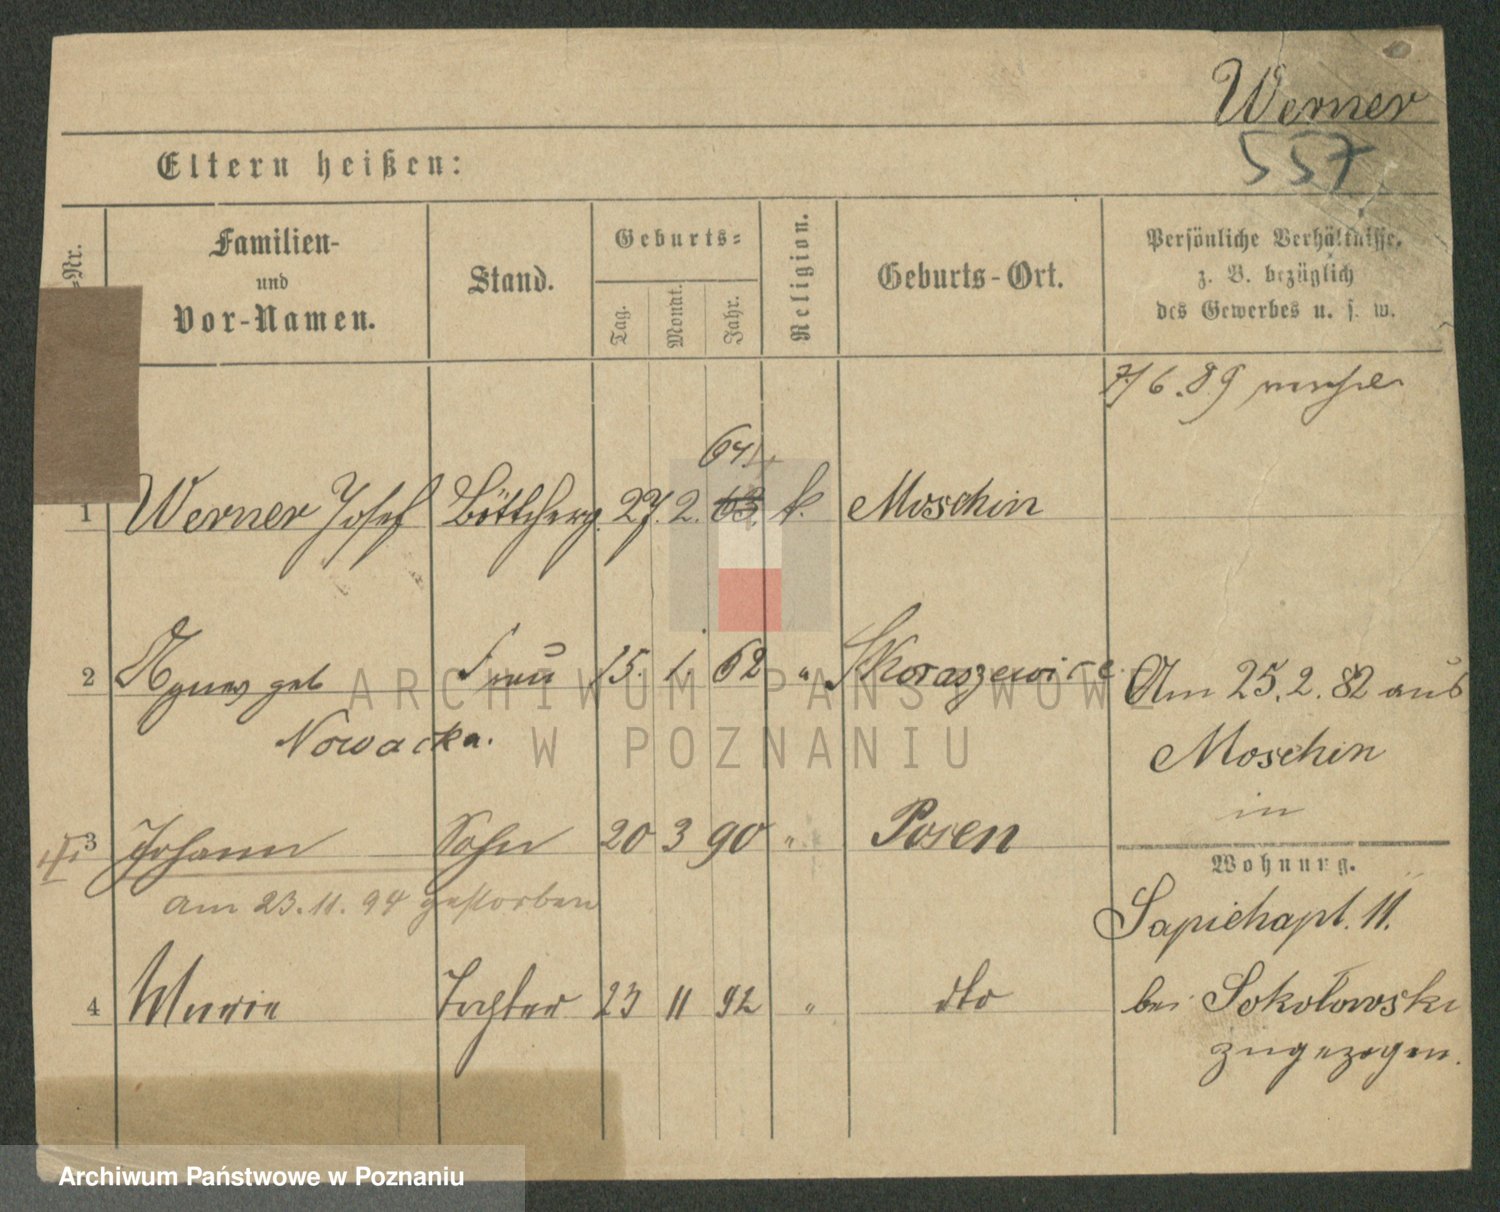 Werner
557
Eltern heißen:
=Nr.
Familien-
und
Vor-Namen.
Stand.
Geburts=
Tag.
Monat.
Jahr.
Religion.
Geburts-Ort.
Persönliche Verhältnisse.
z. B. bezüglich
des Gewerbes u. s. w.
7/6.89
64
1 Werner Josef Böttcherg. 27. 2. 63 k. Moschin
2 Agnes geb Frau 15. 1. 62 " Skoraszewice
Nowacka.
Am 25.2.82 aus
Moschin
in
3 Johann Sohn 20 3 90 " Posen
am 23.11.94 gestorben
Wohnung.
Sapiehapl. 11.
4 Maria Tochter 23 11 92 " dto
bei Sokołowski
zugezogen.
ARCHIWUM PAŃSTWOWE
W POZNANIU
Archiwum Państwowe w Poznaniu